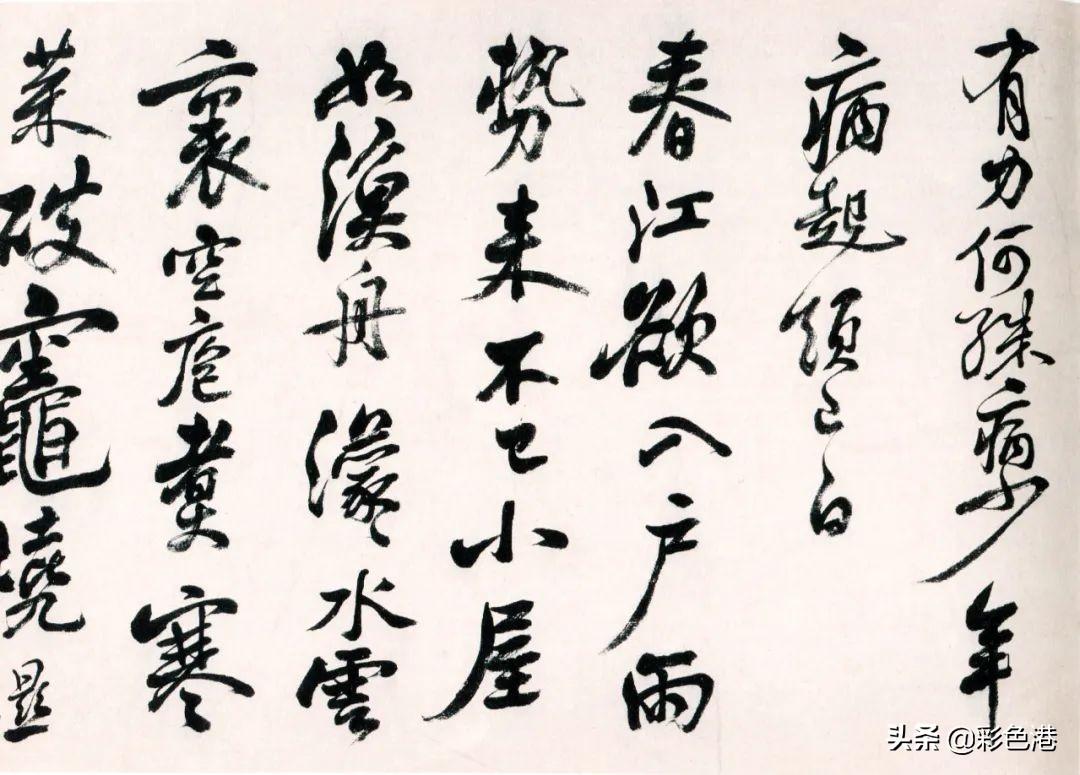 有力何殊病少年
病起須已白
春江欲入户雨
勢来不已小屋
如漁舟濛〻水雲
裏空庖煑寒
菜破竈燒
头条 @彩色港